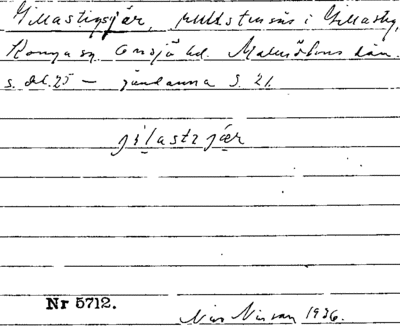 Gillastigsjär, rullstensås i Gillastig,
Konga sn. Onsjö hd. Malmöhus län.
s. bl. 25 – jämlanna S. 21.
jilastɪjær
Nr 5712.
Nils Nilsson 1926.